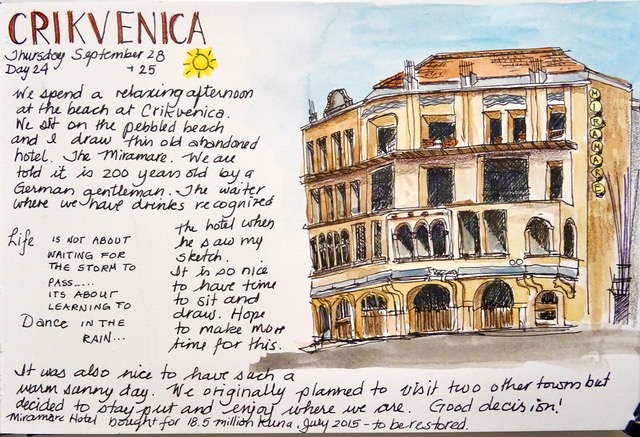 CRIKVENICA
Thursday September 28
Day 24 +25
We spend a relaxing afternoon
at the beach at Crikvenica.
We sit on the pebbled beach
and I draw this old abandoned
hotel. The Miramare. We are
told it is 200 years old by a
German gentleman. The waiter
where we have drinks recognized
the hotel when
he saw my
sketch.
It is so nice
to have time
to sit and
draw. Hope
to make more
time for this.
Life IS NOT ABOUT
WAITING FOR
THE STORM TO
PASS....
ITS ABOUT
LEARNING TO
Dance IN THE
RAIN...
It was also nice to have such a
warm sunny day. We originally planned to visit two other towns but
decided to stay put and enjoy where we are. Good decision!
Miramare Hotel bought for 18.5 million Kuna, July 2015 - to be restored.
MIRAMARE